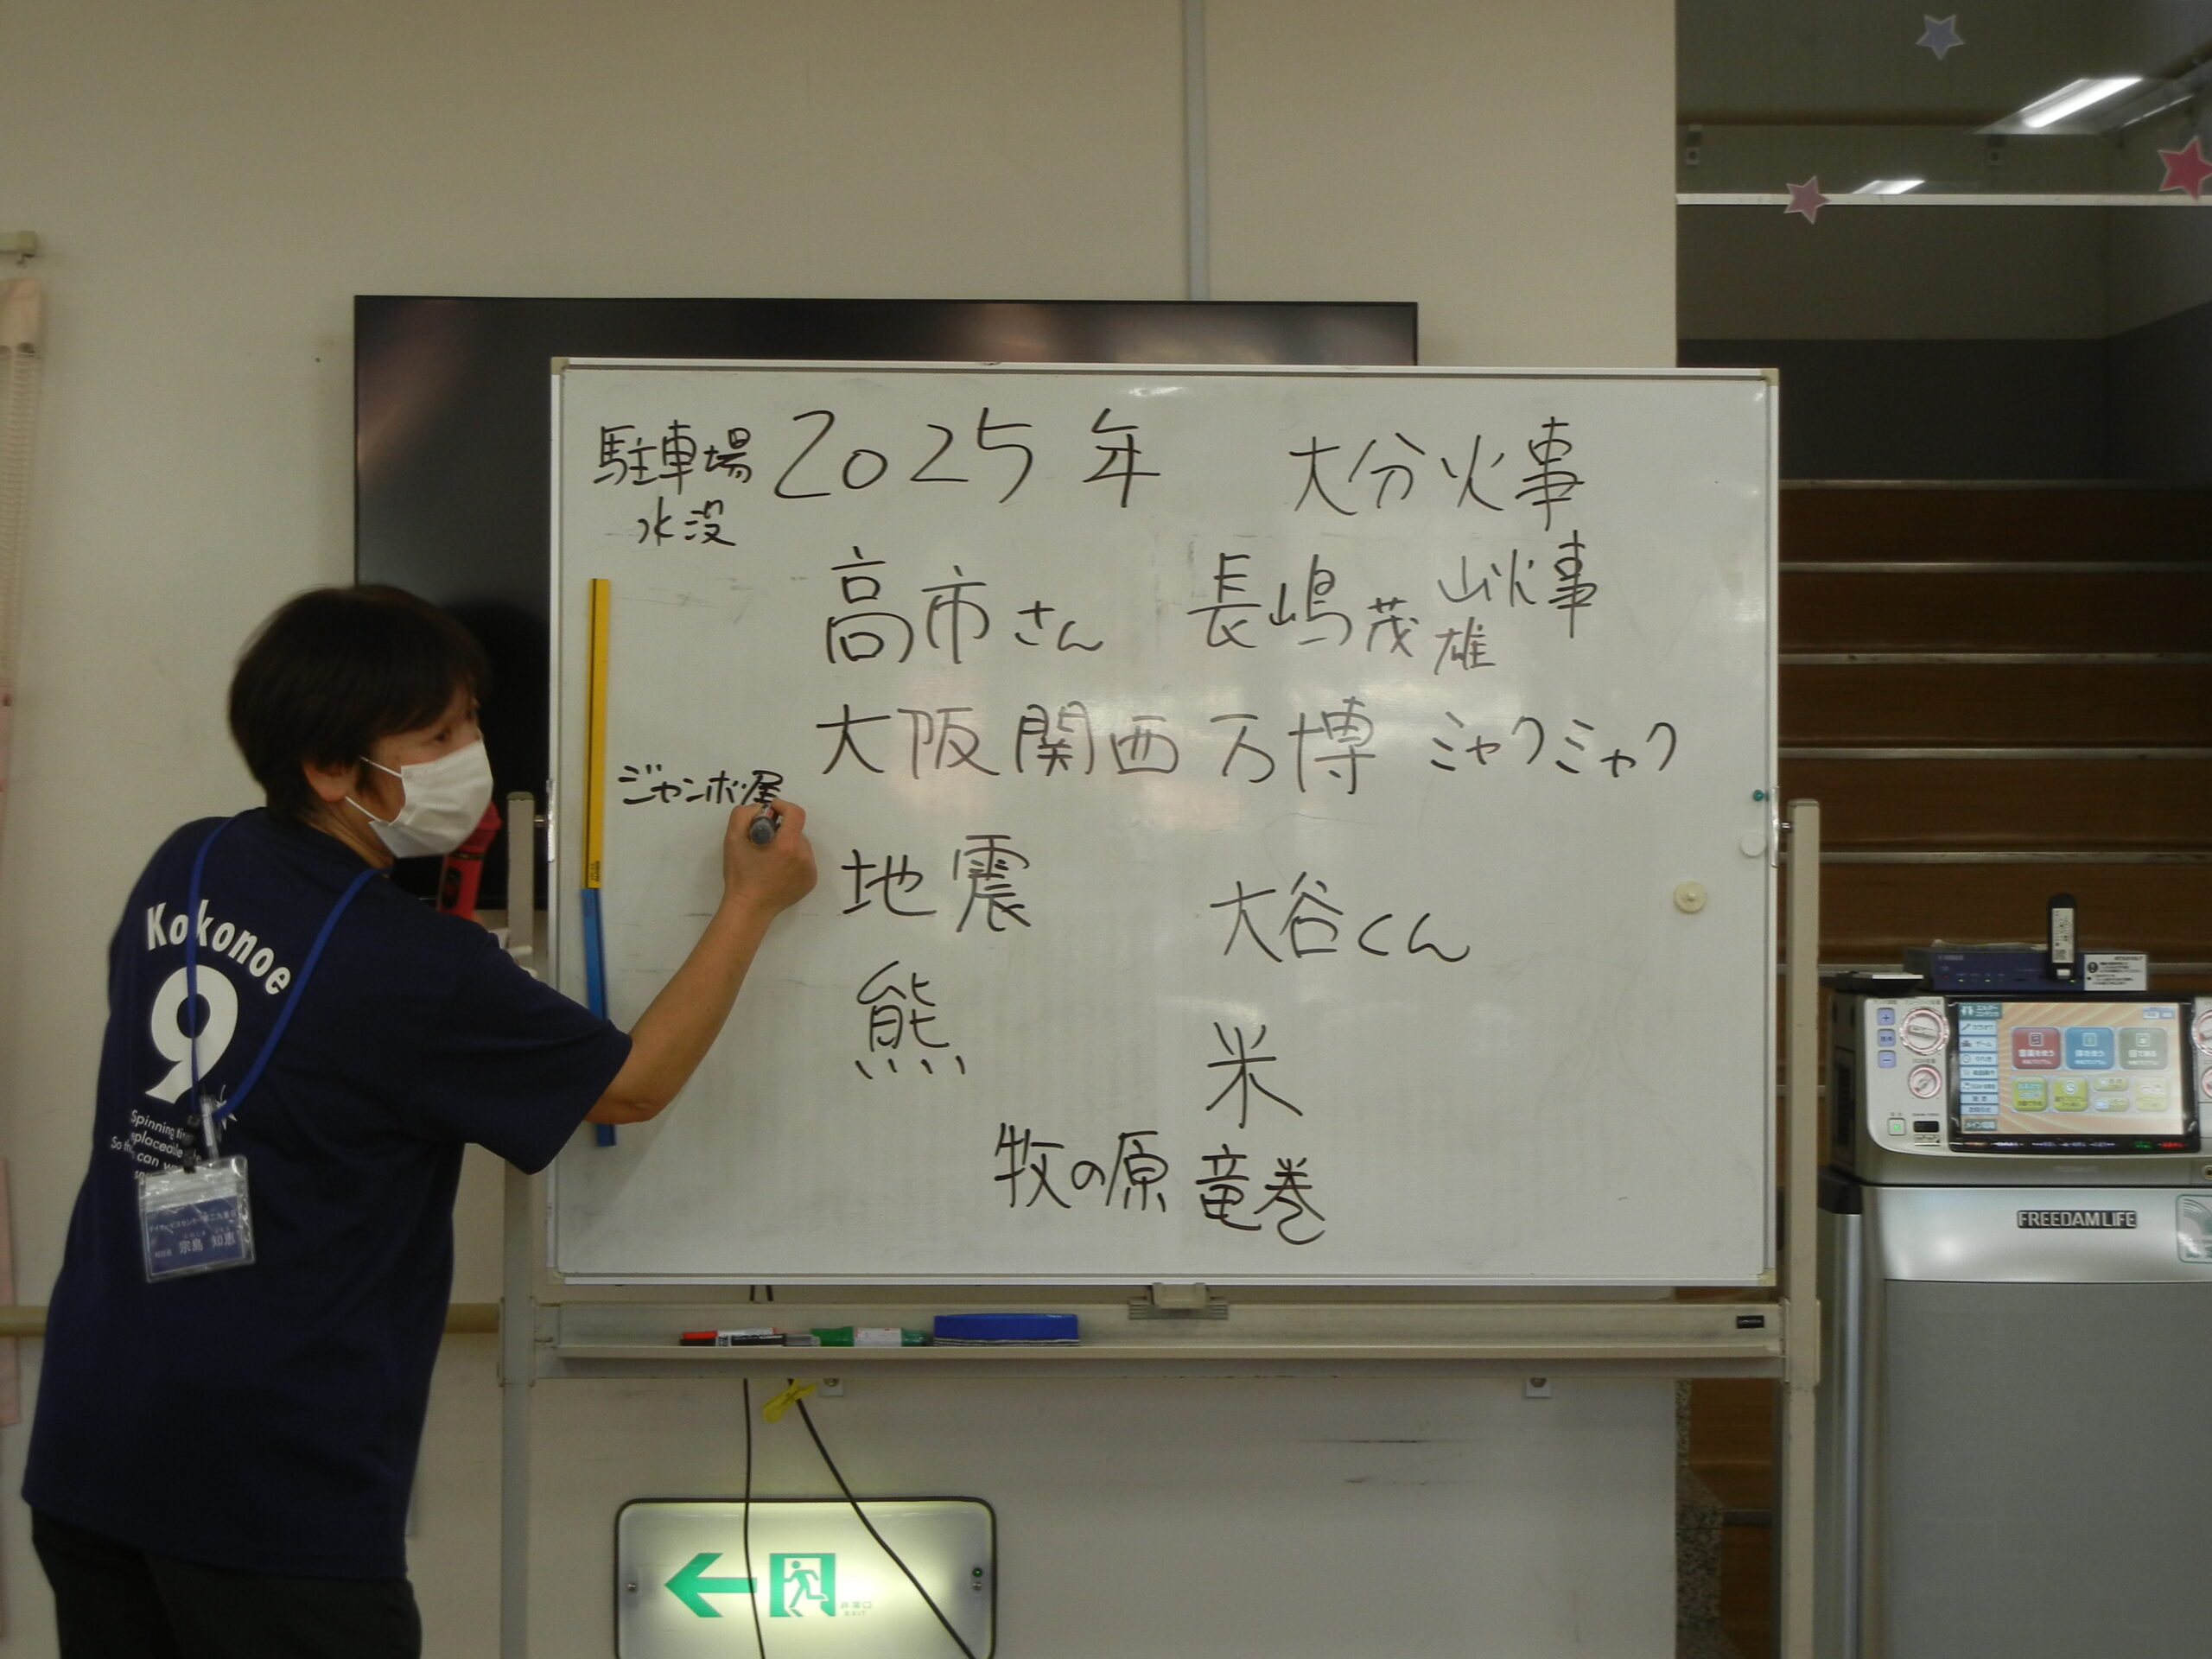 駐車場 2025年 大分火事
水没
高市さん 長嶋茂雄 山火事
大阪関西万博 ミャクミャク
ジャンボ尾
地震 大谷くん
熊
米
牧の原 竜巻
Kokonoe
9
Spinning
So
can
宗島 知恵
FREEDAM LIFE
非常口
EXIT